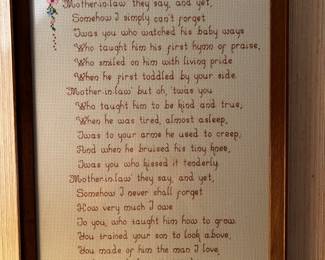 "Mother-in-law" they say, and yet,
Somehow I simply can't forget
'Twas you who watched his baby ways
Who taught him his first hymn of praise,
Who smiled on him with living pride
When he first toddled by your side.
"Mother-in-law" but oh, 'twas you
Who taught him to be kind and true,
When he was tired, almost asleep,
'Twas to your arms he used to creep,
And when he bruised his tiny knee,
'Twas you who kissed it tenderly.
"Mother-in-law" they say, and yet,
Somehow I never shall forget
How very much I owe
To you, who taught him how to grow.
You trained your son to look above,
You made of him the man I love,